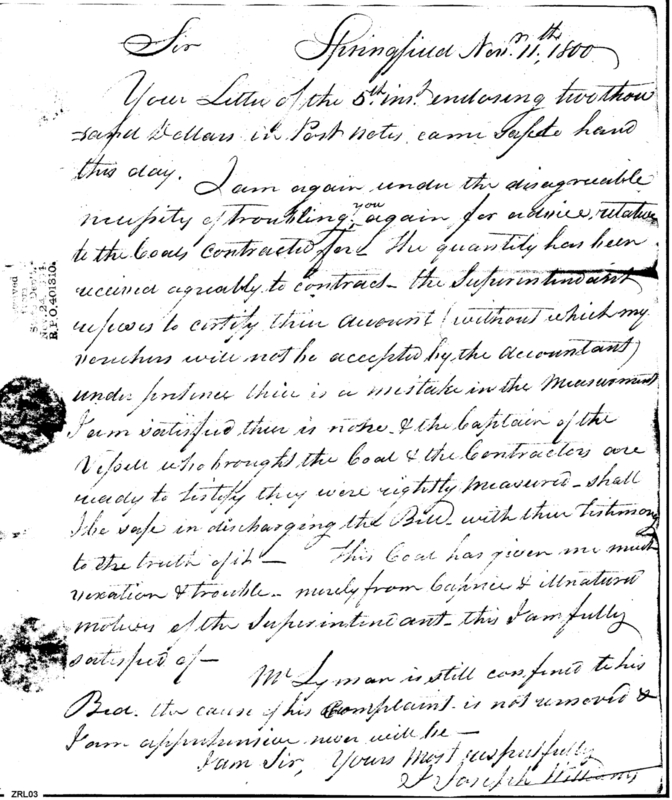 Sir Springfield Novr. 11th, 1800
Your Letter of the 5th inst. enclosing two thou
sand Dollars in Post notes came safe to hand
this day. I am again under the disagreeable
necessity of troubling you again for advice, relative
to the Coals contracted for - The quantity has been
received agreably to contract - the Superintendant
refuses to certify their account (without which my
vouchers will not be accepted by the Accountant)
under pretence their is a mistake in the Measurment
I am satisfied their is none - & the Captain of the
Vessell who brought the Coal & the Contractors are
ready to testify they were rightly Measured - shall
I be safe in discharging the Bill - with their testimony
to the truth of it - This Coal has given me much
vexation & trouble - merely from Caprice & illnatured
motives of the Superintendant - this I am fully
satisfied of -
Mr Lyman is still confined to his
Bed. the cause of his Complaint is not removed &
I am apprehensive never will be -
I am Sir, Yours Most respectfully
Joseph Williams
B.P.O. 401310.
ZRL03